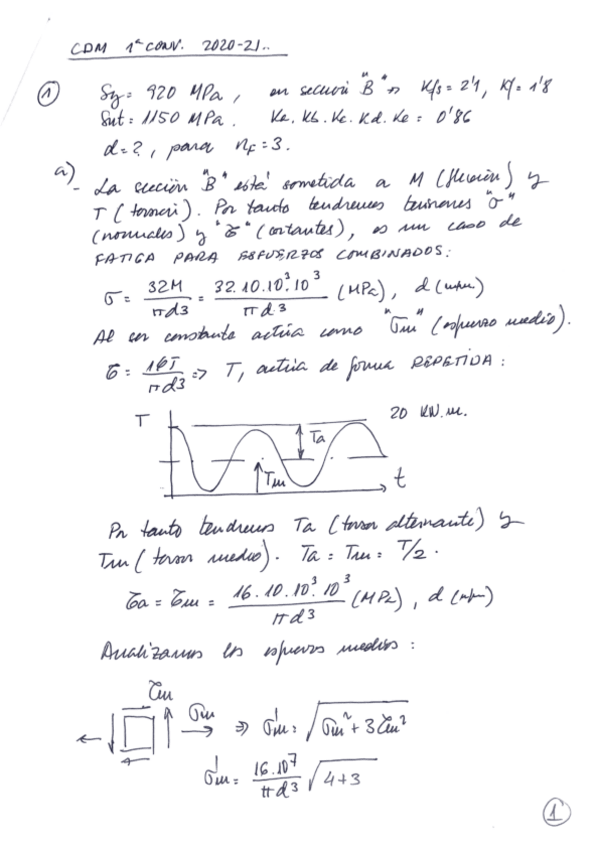 CDM 1ª CONV. 2020-21..
① Sy = 920 MPa, en sección "B" n Kfs = 2'1, Kf = 1'8
Sut = 1150 MPa. Ka. Kb. Kc. Kd. Ke = 0'86
d = ?, para nF = 3.
a) - La sección "B" está sometida a M (flexión) y
T (torsor). Por tanto tendremos tensiones "σ"
(normales) y "ζ" (cortantes), es un caso de
FATIGA PARA ESFUERZOS COMBINADOS:
σ = 32M / πd3 = 32.10.10³.10³ / πd3 (MPa), d (mm)
Al ser constante actúa como "σm" (esfuerzo medio).
ζ = 16T / πd3 => T, actúa de forma REPETIDA:
T 20 KN.m.
Ta
Tm t
Por tanto tendremos Ta (torsor alternante) y
Tm (torsor medio). Ta = Tm = T/2.
ζa = ζm = 16.10.10³.10³ / πd3 (MPa), d (mm)
Analizamos los esfuerzos medios:
ζm
σm => σ'm = √(σm² + 3ζm²)
σ'm = 16.10⁷ / πd3 √(4+3)
①